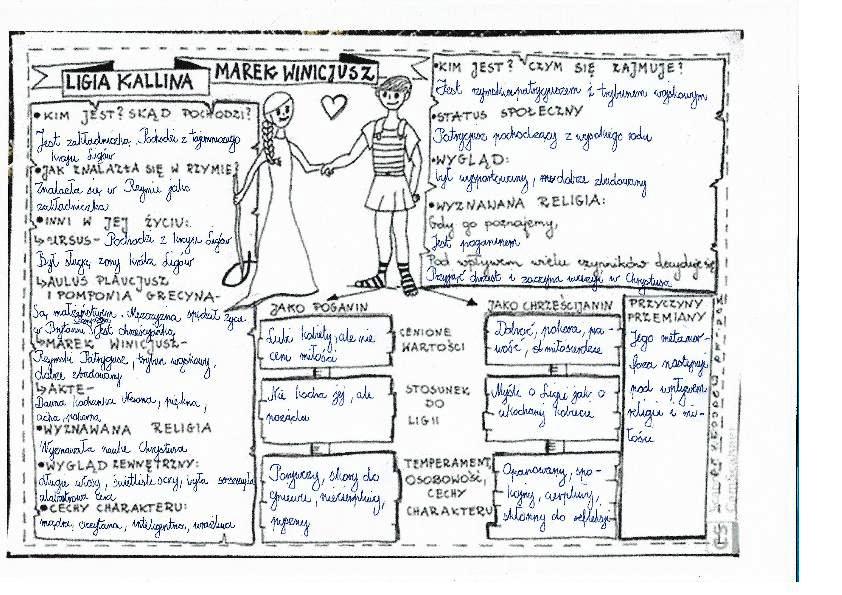 LIGIA KALLINA
MAREK WINICJUSZ
•KIM JEST? SKĄD POCHODZI?
Jest zakładniczką. Pochodzi z tajemniczego
kraju Ligów
•JAK ZNALAZŁA SIĘ W RZYMIE?
Znalazła się w Rzymie jako
zakładniczka
•INNI W JEJ ŻYCIU:
↳URSUS- Pochodzi z kraju Ligów
Był sługą żony króla Ligów
↳AULUS PLAUCJUSZ
I POMPONIA GRECYNA-
Są małżeństwem. Mężczyzna spędził życie
w Brytanii. Jest chrześcijanką
↳MAREK WINICJUSZ-
Rzymski Patrycjusz, trybun wojskowy,
dobrze zbudowany
↳AKTE-
Dawna kochanka Nerona, piękna,
cicha, pokorna
•WYZNAWANA RELIGIA
Wyznawała nauki Chrystusa
•WYGLĄD ZEWNĘTRZNY:
długie włosy, świetliste oczy, była szczupła
alabastrowa cera
•CECHY CHARAKTERU:
mądra, oczytana, inteligentna, wrażliwa
•KIM JEST? CZYM SIĘ ZAJMUJE?
Jest rzymskim patrycjuszem i trybunem wojskowym
•STATUS SPOŁECZNY
Patrycjusz pochodzący z wysokiego rodu
•WYGLĄD:
był wysportowany, dobrze zbudowany
•WYZNAWANA RELIGIA:
Gdy go poznajemy,
jest poganinem
Pod wpływem wielu czynników decyduje się
Przyjąć chrzest i zaczyna wierzyć w Chrystusa
JAKO POGANIN
JAKO CHRZEŚCIJANIN
Lubi kobiety, ale nie
ceni miłości
CENIONE
WARTOŚCI
Dobroć, pokora, pa-
wość, miłosierdzie
Nie kocha jej, ale
pożąda
STOSUNEK
DO
LIGII
Myśli o Ligii jak o
ukochanej kobiecie
Porywczy, skory do
gniewu, niecierpliwy,
TEMPERAMENT,
OSOBOWOŚĆ,
CECHY
CHARAKTERU
Opanowany, spo-
kojny, cierpliwy,
skłonny do refleksji
PRZYCZYNY
PRZEMIANY
Jego metamor-
foza następuje
pod wpływem
religii i mi-
łości